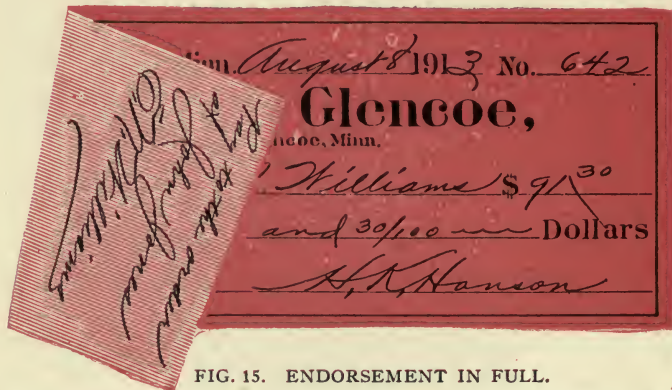 inn. August 8 1913 No. 642
Glencoe,
ncoe, Minn.
Williams $ 91 30
and 30/100 Dollars
H. K. Hanson
Pay to the order
of
John Jones
Williams
FIG. 15. ENDORSEMENT IN FULL.